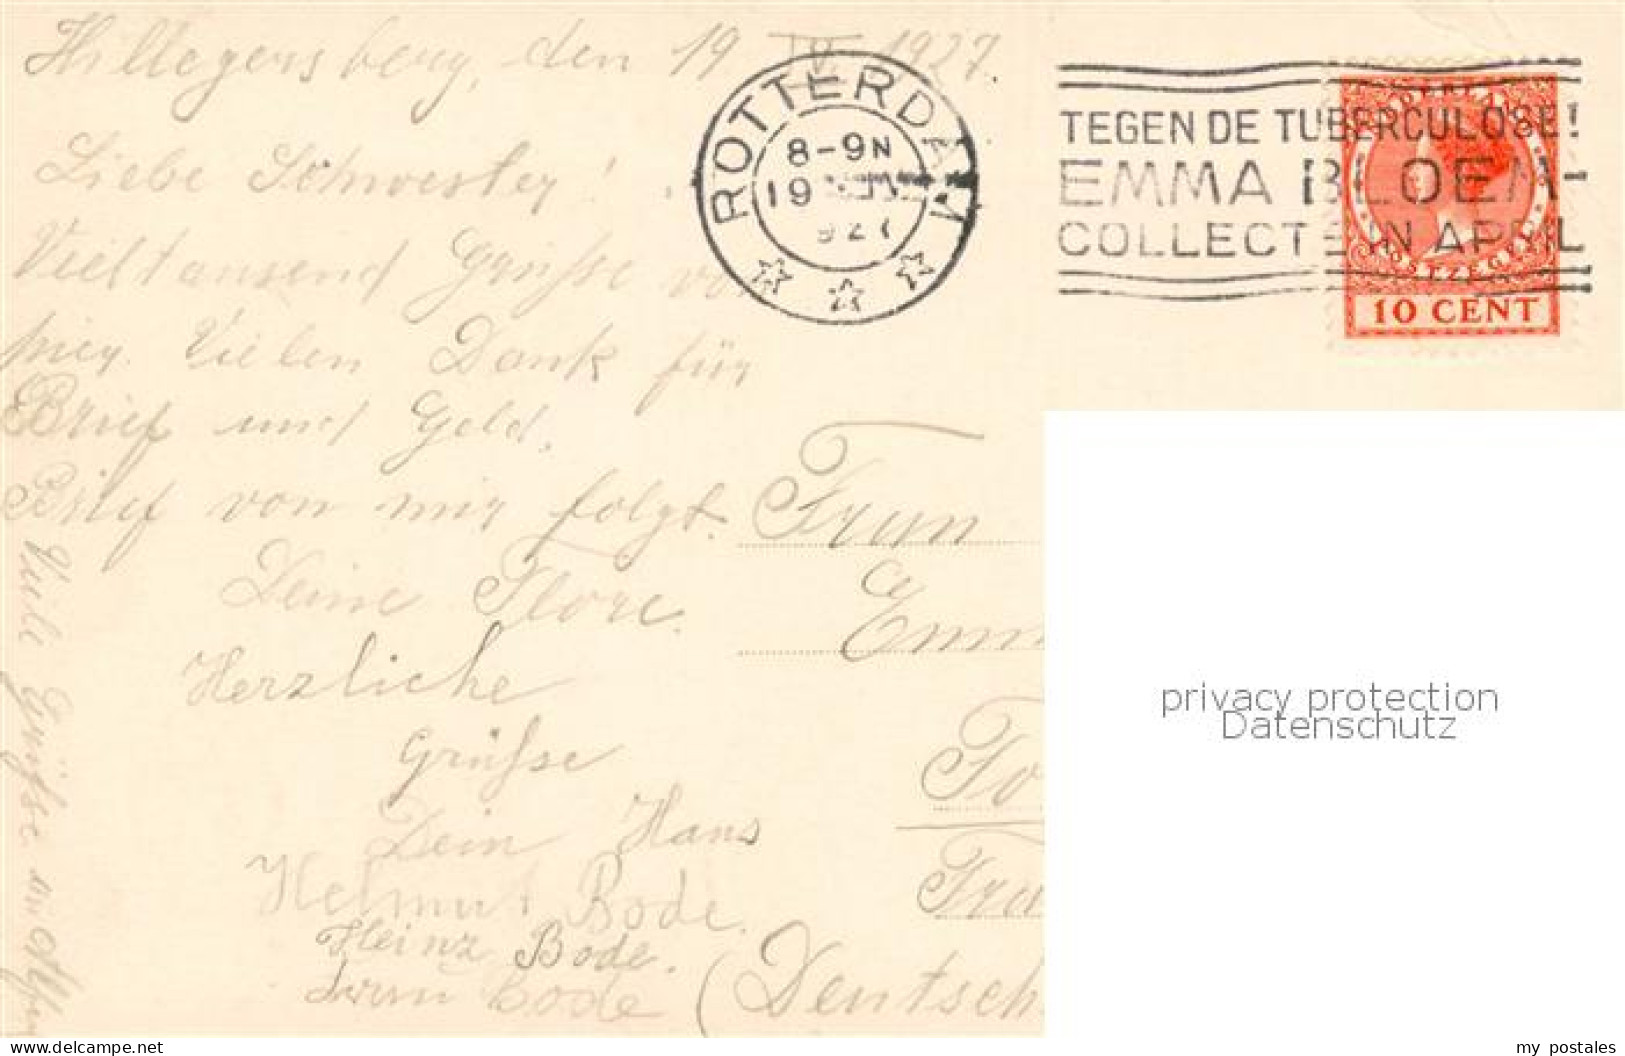 Hillegersberg, den 19. IV. 1927.
Liebe Schwester!
Vieltausend Grüsse von
hier. Vielen Dank für
Brief und Geld.
Brief von mir folgt.
Deine Flore.
Herzliche
Grüsse
Dein Hans
Helmut Bode.
Heinz Bode.
Bode
Viele Grüsse
ROTTERDAM
8-9N
19 IV
1927
TEGEN DE TUBERCULOSE!
EMMA BLOEM-
COLLECTE IN APRIL
NEDERLAND
POSTZEGEL
10 CENT
Frau
Emm
To
Fra
(Deutsch
privacy protection
Datenschutz
www.mypostales.com/akpool.de
my_postales